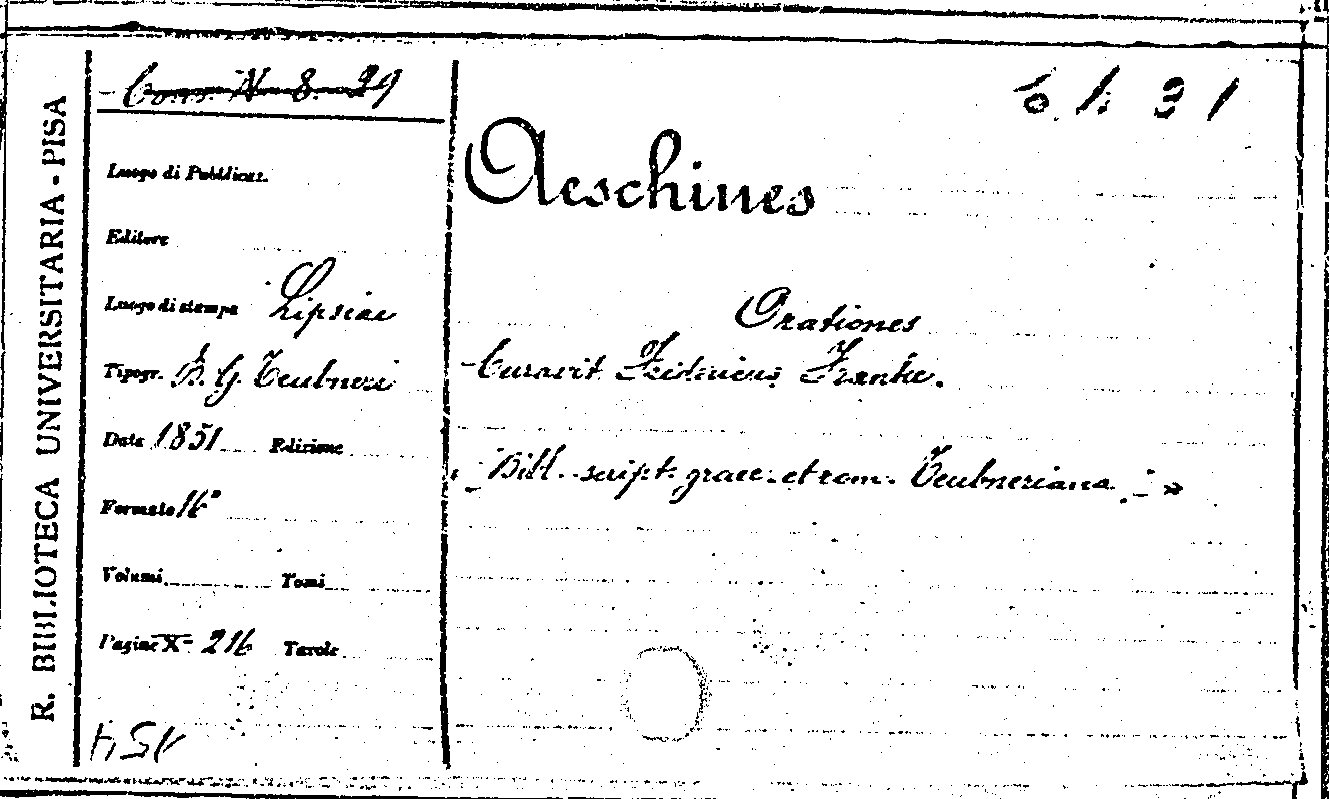 R. BIBLIOTECA UNIVERSITARIA - PISA
Cons. N 8. 29
Luogo di Pubblicaz.
Editore
Luogo di stampa Lipsiae
Tipogr. B. G. Teubneri
Data 1851 Edizione
Formato 16°
Volumi Tomi
Pagine X- 216 Tavole
Aeschines
Orationes
Curavit Fridericus Franke.
« Bibl. script. graec. et rom. Teubneriana. »